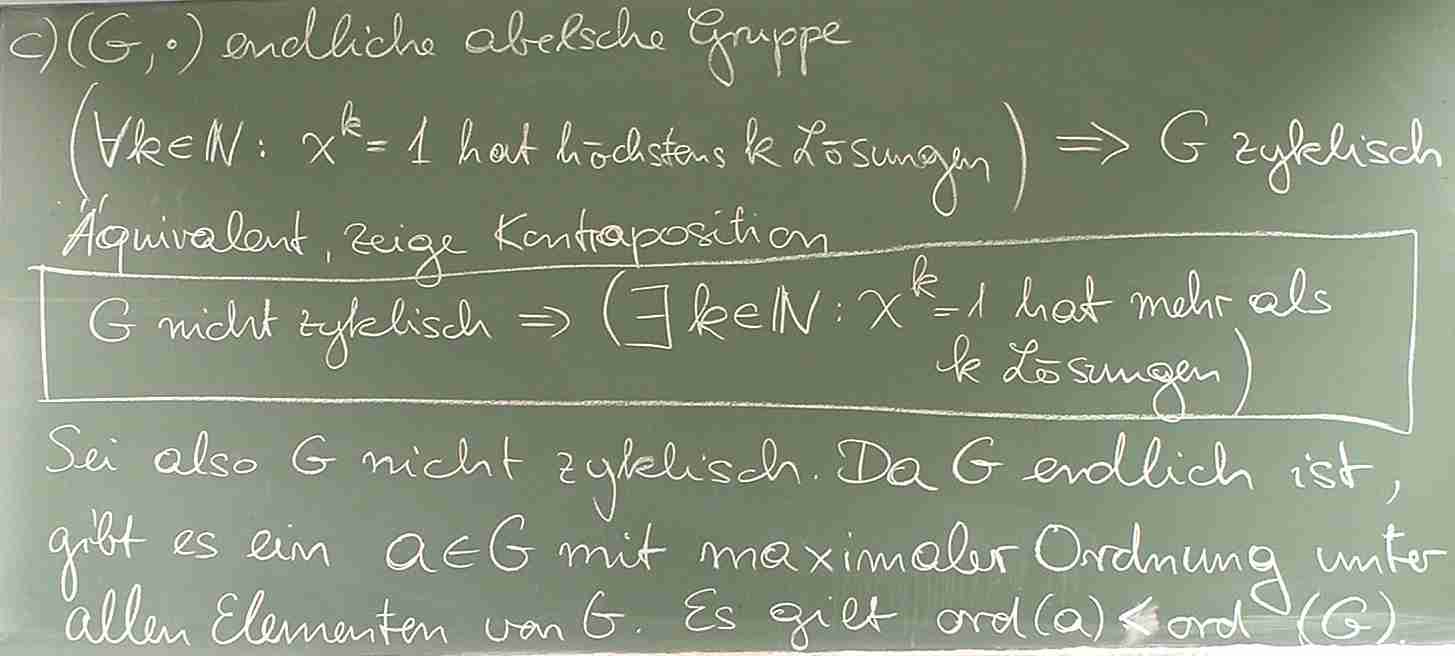 c) (G, ·) endliche abelsche Gruppe
(∀k∈ℕ: x^k = 1 hat höchstens k Lösungen) ⇒ G zyklisch
Äquivalent, zeige Kontraposition
G nicht zyklisch ⇒ (∃ k∈ℕ: x^k = 1 hat mehr als
k Lösungen)
Sei also G nicht zyklisch. Da G endlich ist,
gibt es ein a∈G mit maximaler Ordnung unter
allen Elementen von G. Es gilt ord(a) < ord (G).